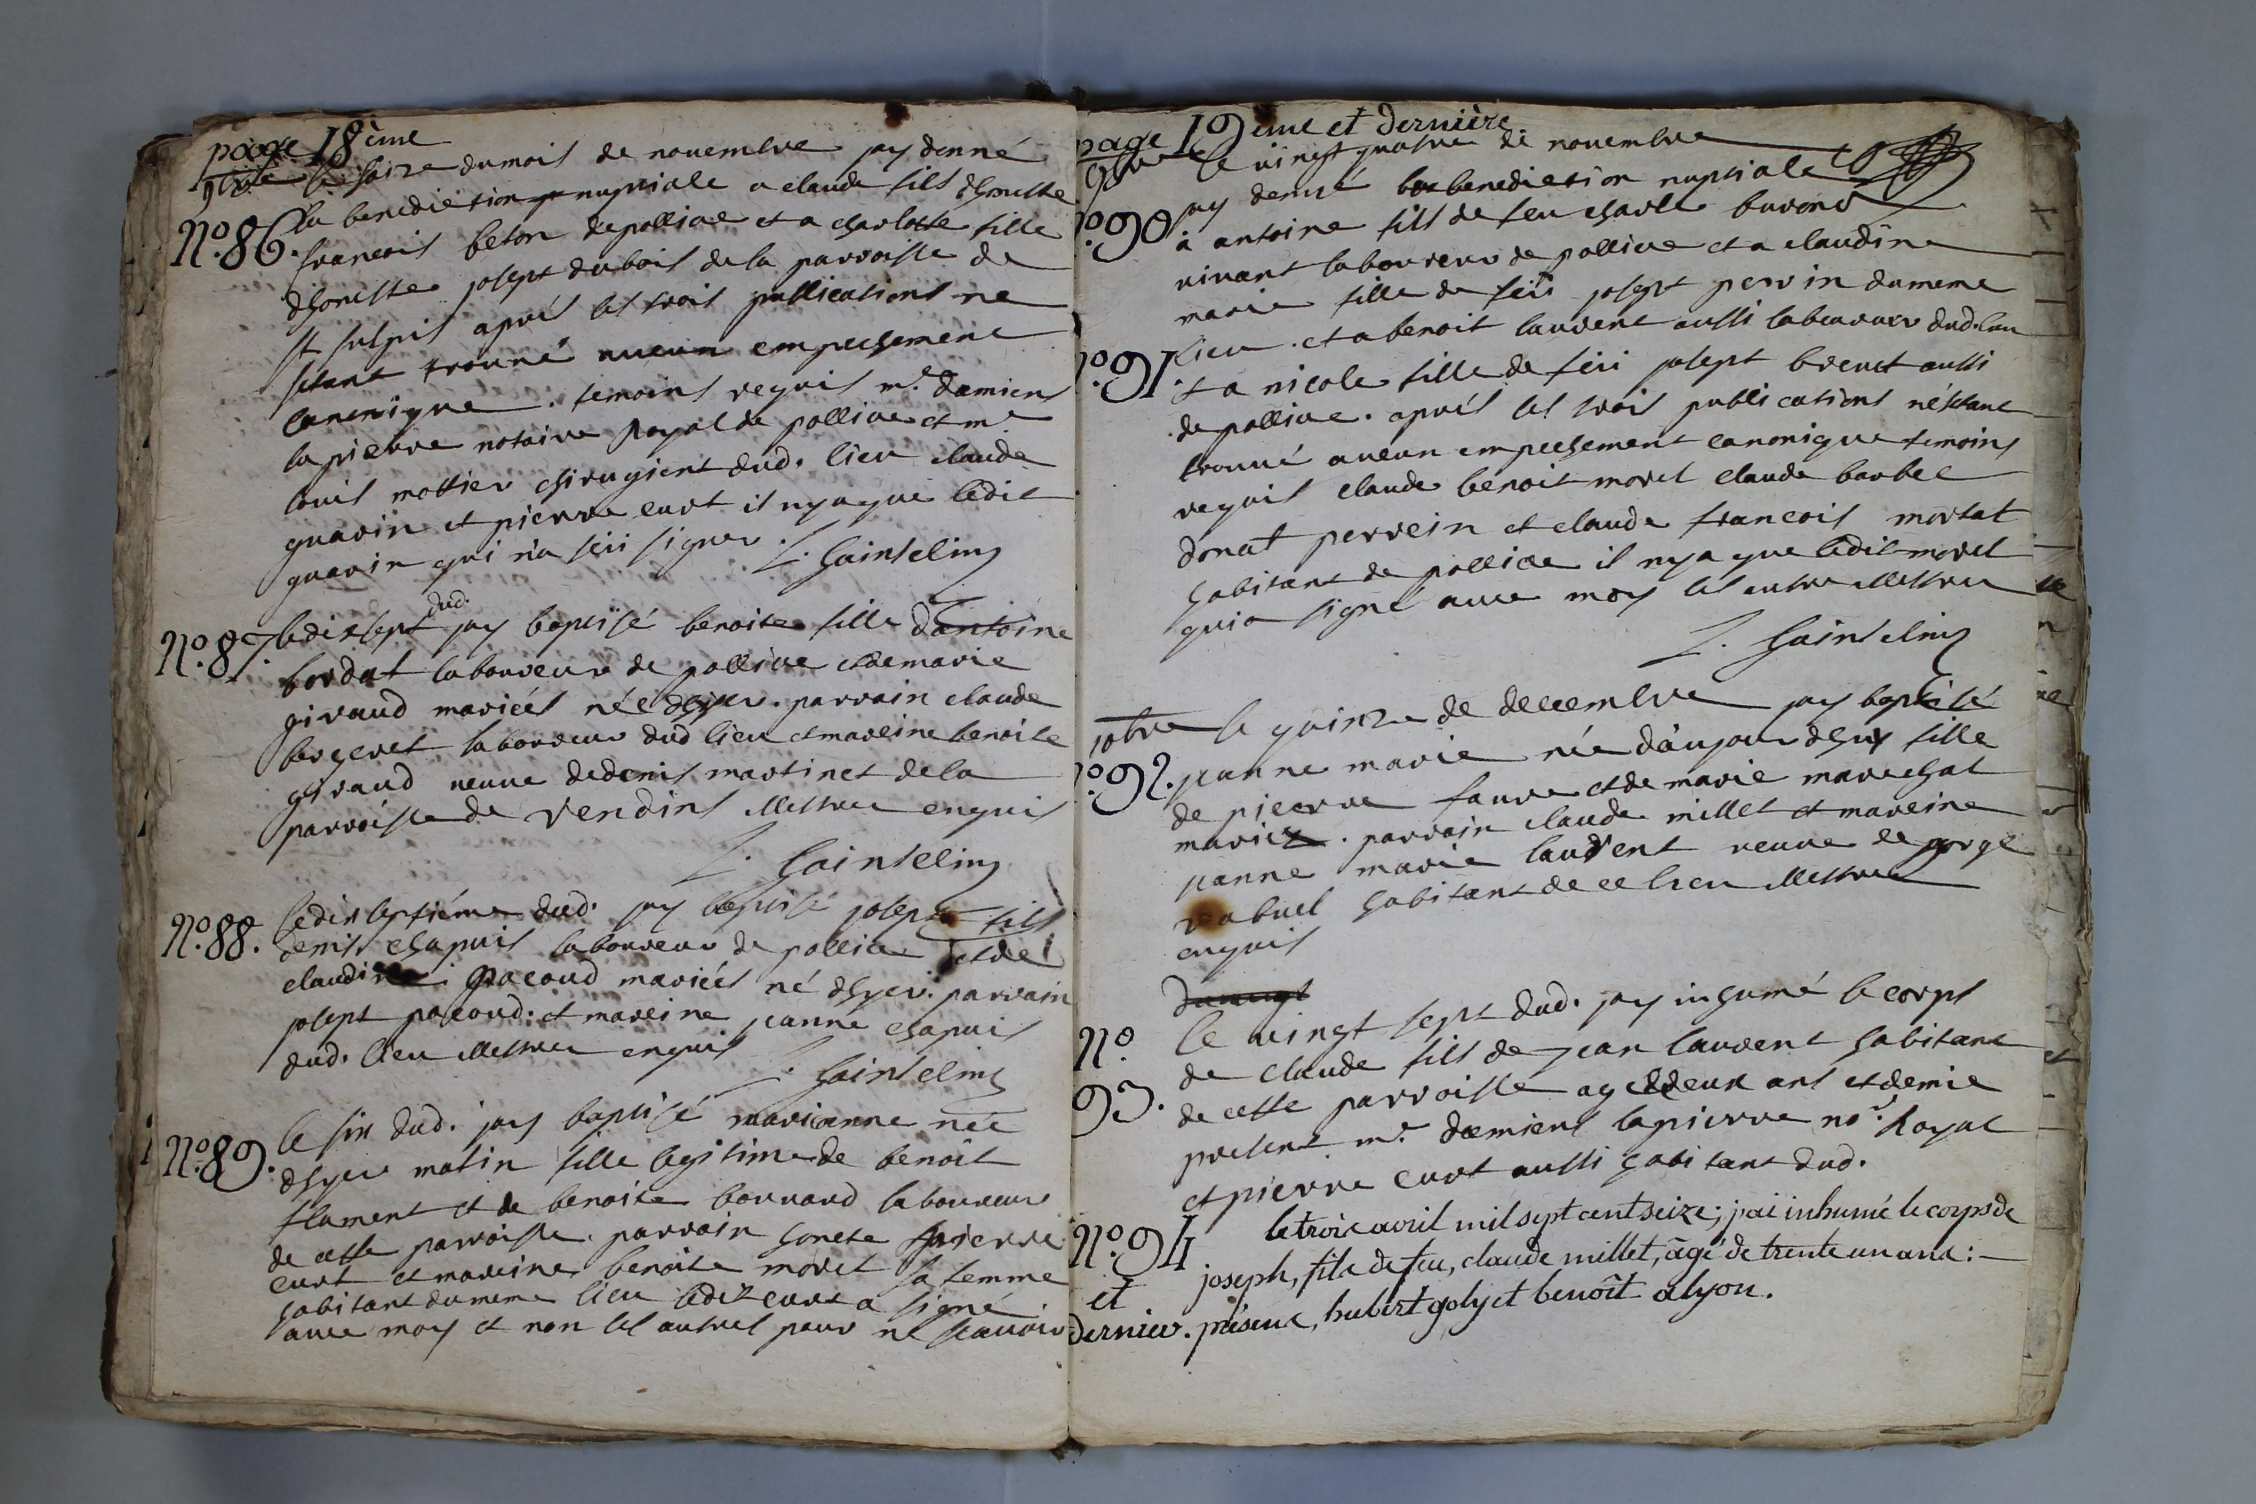 page 18ème
9bre le saize du mois de novembre jay donné
la benediction nuptiale a claude fils dhoneste
N.º 86. francois beton de pollieu et a charlotte fille
dhoneste josept dubois de la parroisse de
st sulpis apres les trois publications ne
sétant trouvé aucun empechement
canonique. temoins requis mᵉ. damiens
lapierre notaire Royal de pollieu et mᵉ
louis mottier chirugient dud. lieu claude
guarin et pierre curt il nya que ledit
guarin qui na sceu signer.
J. Sainselin
N.º 87. le dixsept dud. jay baptisé benoite fille dantoine
bordat laboureur de pollieu et de marie
giraud mariés née dhyer. parrain claude
bergeret laboureur dud lieu et mareine benoite
giraud veuve de denis martinet de la
parroisse de vendins illestrer enquis
J. Sainselin
N.º 88. le dix septiéme dud. jay baptisé josept fils
denis chapuis laboureur de pollieu et de
claudine pacoud mariés né dhyer. parrain
josept pacoud. et mareine jeanne chapuis
dud. lieu illestrer enquis
J. Sainselin
N.º 89. le six dud. jay baptisé marianne née
dhyer matin fille legitime de benoit
flament et de benoite bouvard laboureur
de cette parroisse. parrain honete pierre
curt et mareine benoite moret sa femme
habitant du meme lieu ledit curt a signé
avec moy et non les autres pour ne scavoir
page 19eme et dernière
9bre le vingt quatre de novembre
jay donné la benediction nuptiale
nº. 90 à antoine fils de feu charle burond
vivant laboureur de pollieu et a claudine
marie fille de feu josept perrin du meme
lieu. et a benoit laurent aussi laboureur dud. lieu
nº. 91. et a nicole fille de feu josept brevet aussi
de pollieu. aprés les trois publications nésétant
trouvé aucun empechement canonique temoins
requis claude benoit moret claude barbe
donat perrein et claude francois mortat
habitant de pollieu il nya que ledit moret
qui a signé avec moy les autre illestrer
J. Sainselin
10bre le quinze de decembre jay baptisé
nº. 92. jeanne marie née daujourdhuy fille
de pierre faure et de marie marechat
mariez. parrain claude millet et mareine
jeanne marie laurent veuve de gorge
rabuel habitant de ce lieu illestrer
enquis
Nº le vingt sept dud. jay inhumé le corps
93. de claude fils de jean laurent habitant
de cette parroisse agé deux ans et demie
present mᵉ. damiens lapierre noʳᵉ. Royal
et pierre curt aussi habitant dud.
Nº. 94 le trois avril mil sept cent seize; j'ai inhumé le corps de
et joseph, fils de feu, claude millet, âgé de trente un ans:
dernier. présens, hubert goly et benoît alyon.